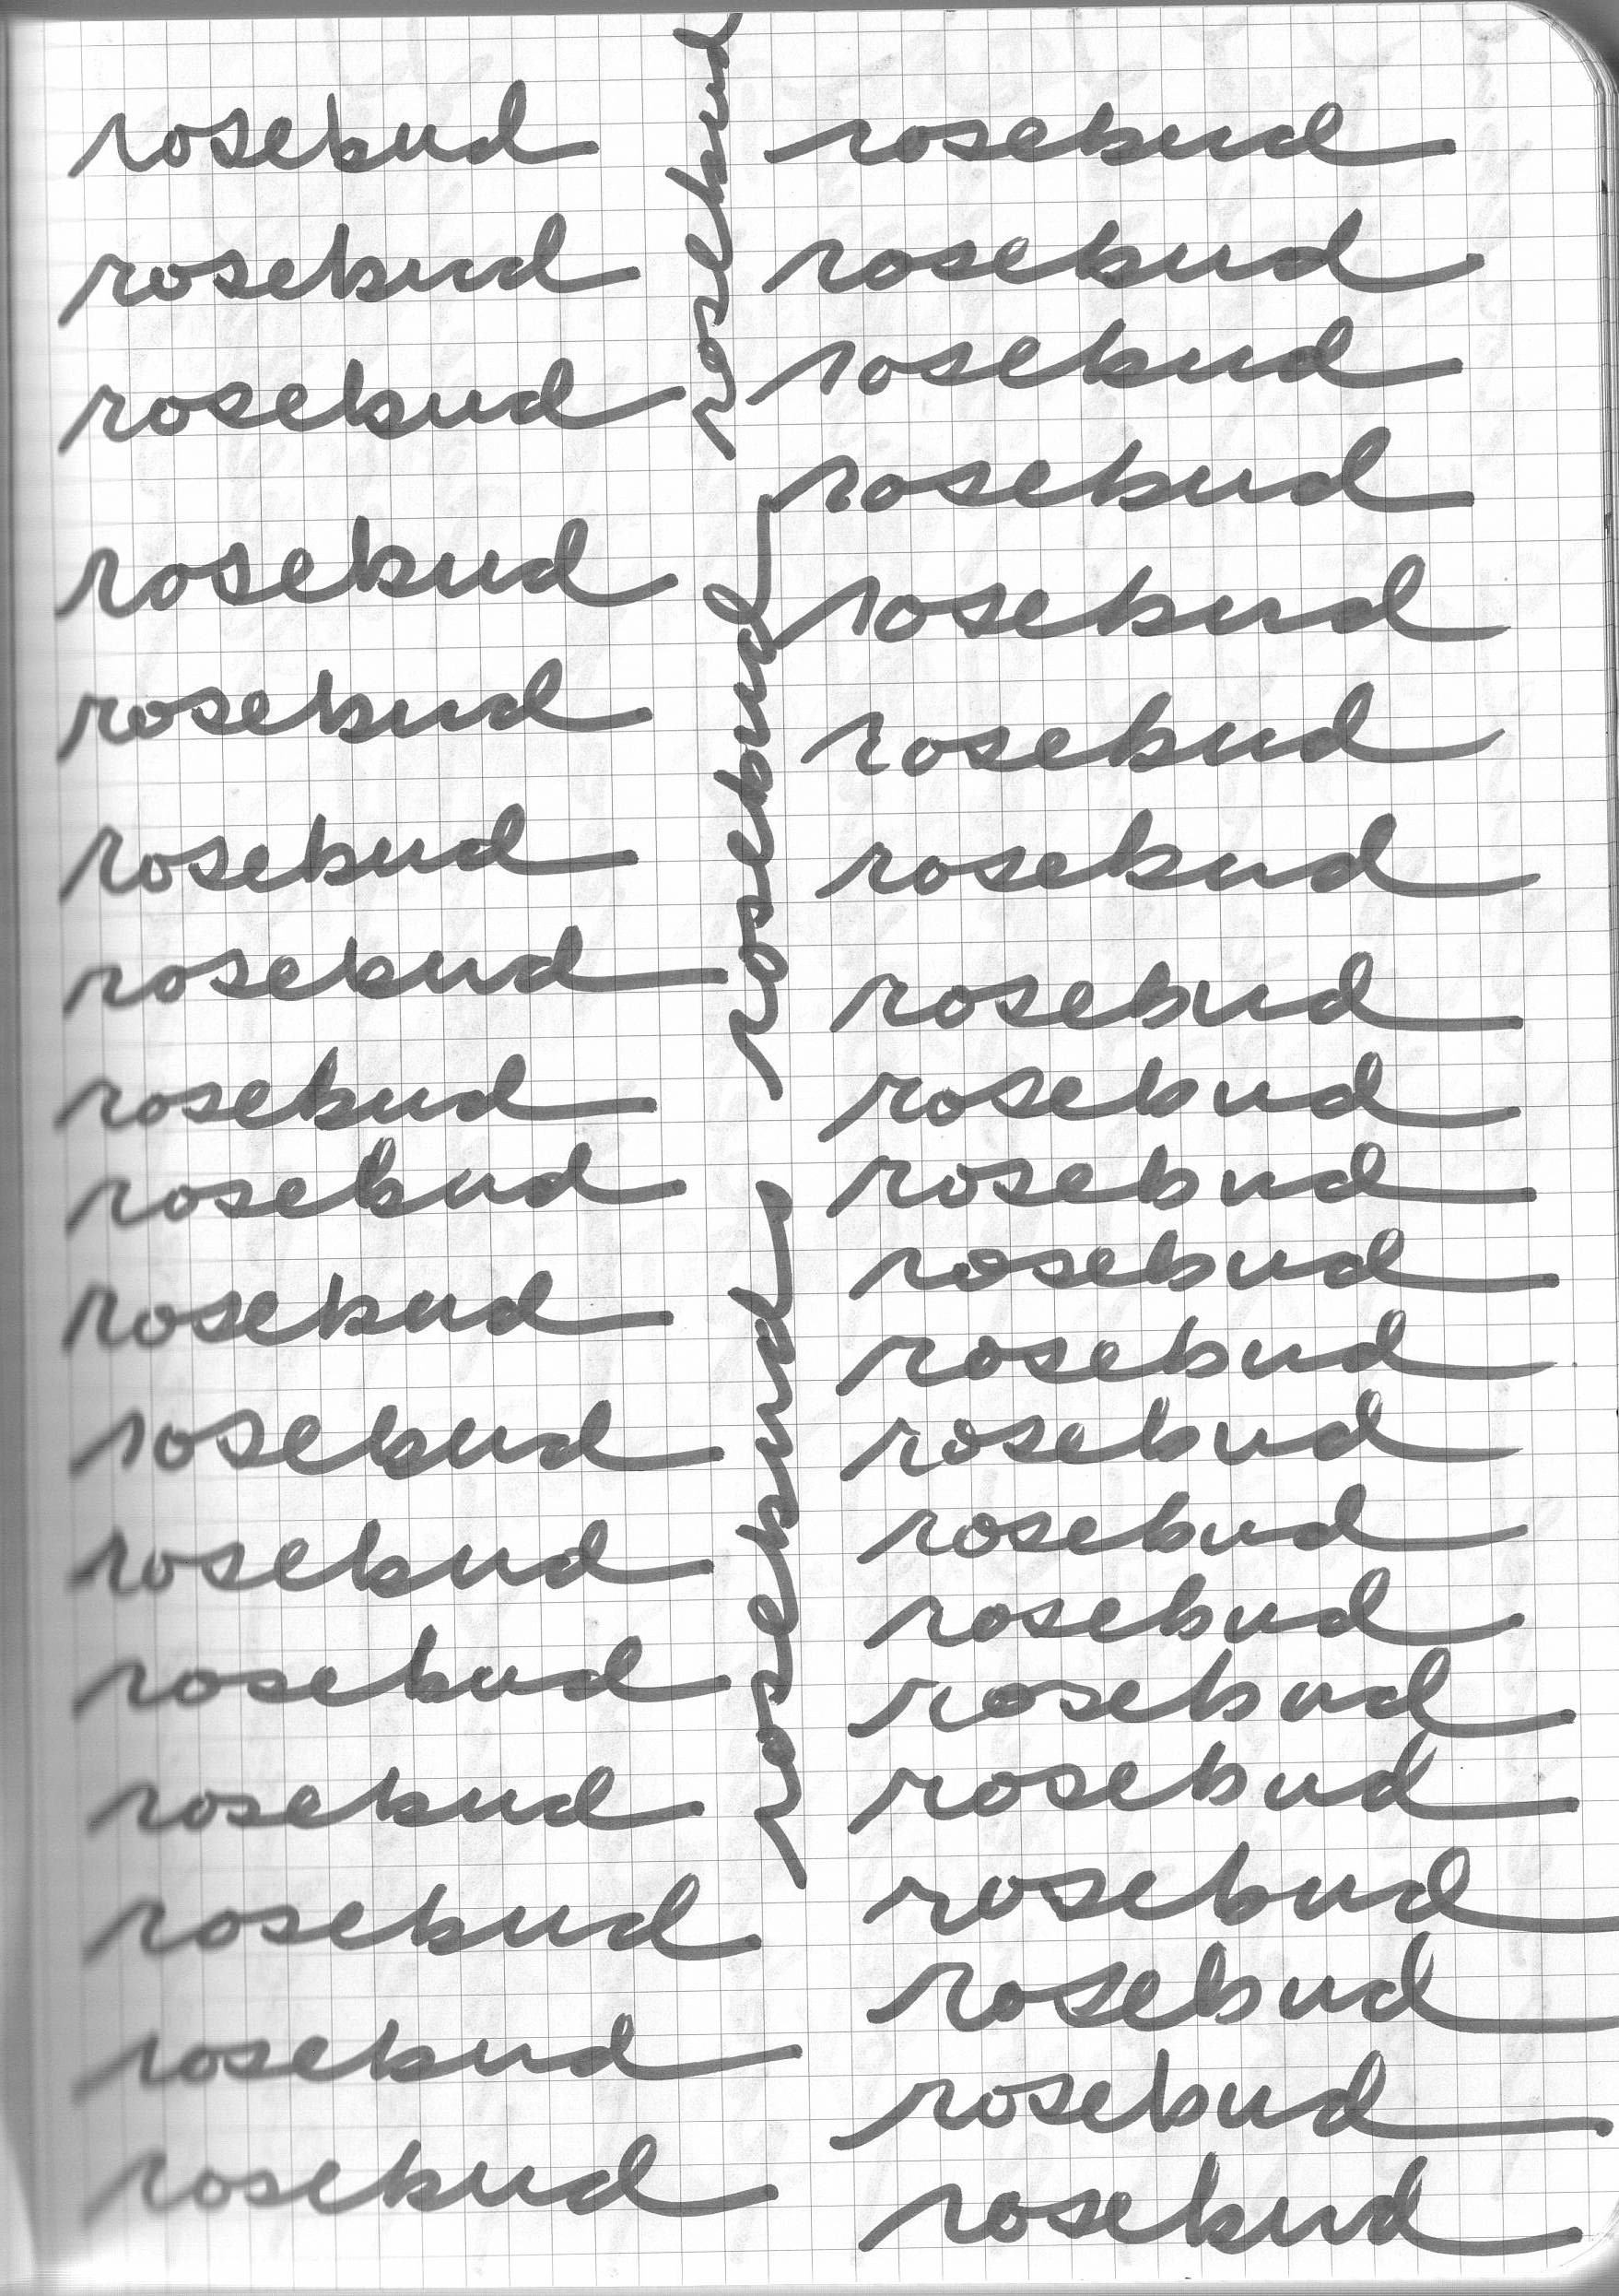 rosebud
rosebud
rosebud
rosebud
rosebud
rosebud
rosebud
rosebud
rosebud
rosebud
rosebud
rosebud
rosebud
rosebud
rosebud
rosebud
rosebud
rosebud
rosebud
rosebud
rosebud
rosebud
rosebud
rosebud
rosebud
rosebud
rosebud
rosebud
rosebud
rosebud
rosebud
rosebud
rosebud
rosebud
rosebud
rosebud
rosebud
rosebud
rosebud
rosebud
rosebud